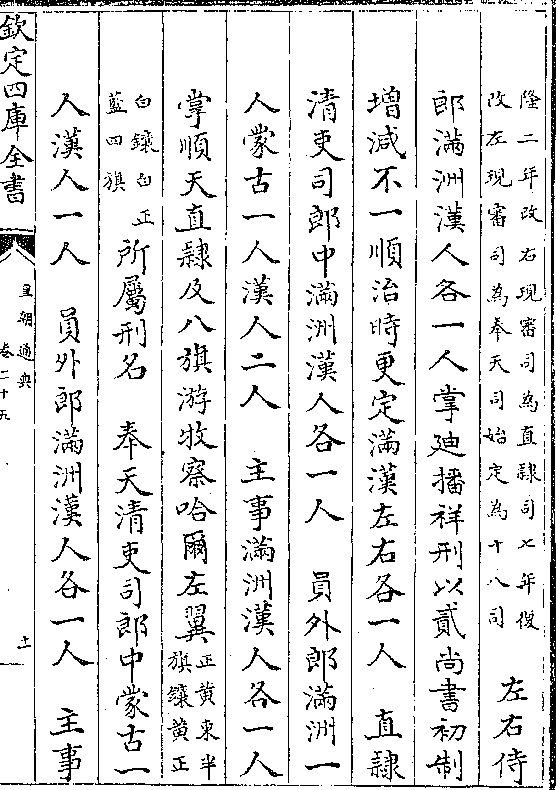 隆二年改右現審司為直隸司七年復
改左現審司為奉天司始定為十八司
左右侍
郎滿洲漢人各一人掌廸播祥刑以貳尚書初制
增減不一順治時更定滿漢左右各一人　直隸
清吏司郎中滿洲漢人各一人　員外郎滿洲一
人蒙古一人漢人二人　主事滿洲漢人各一人
掌順天直隸及八旗游牧察哈爾左翼
正黃東半
旗鑲黃正
白鑲白正
藍四旗
所屬刑名　奉天清吏司郎中蒙古一
人漢人一人　員外郎滿洲漢人各一人　主事
欽定四庫全書
皇朝通典
卷二十五
十一